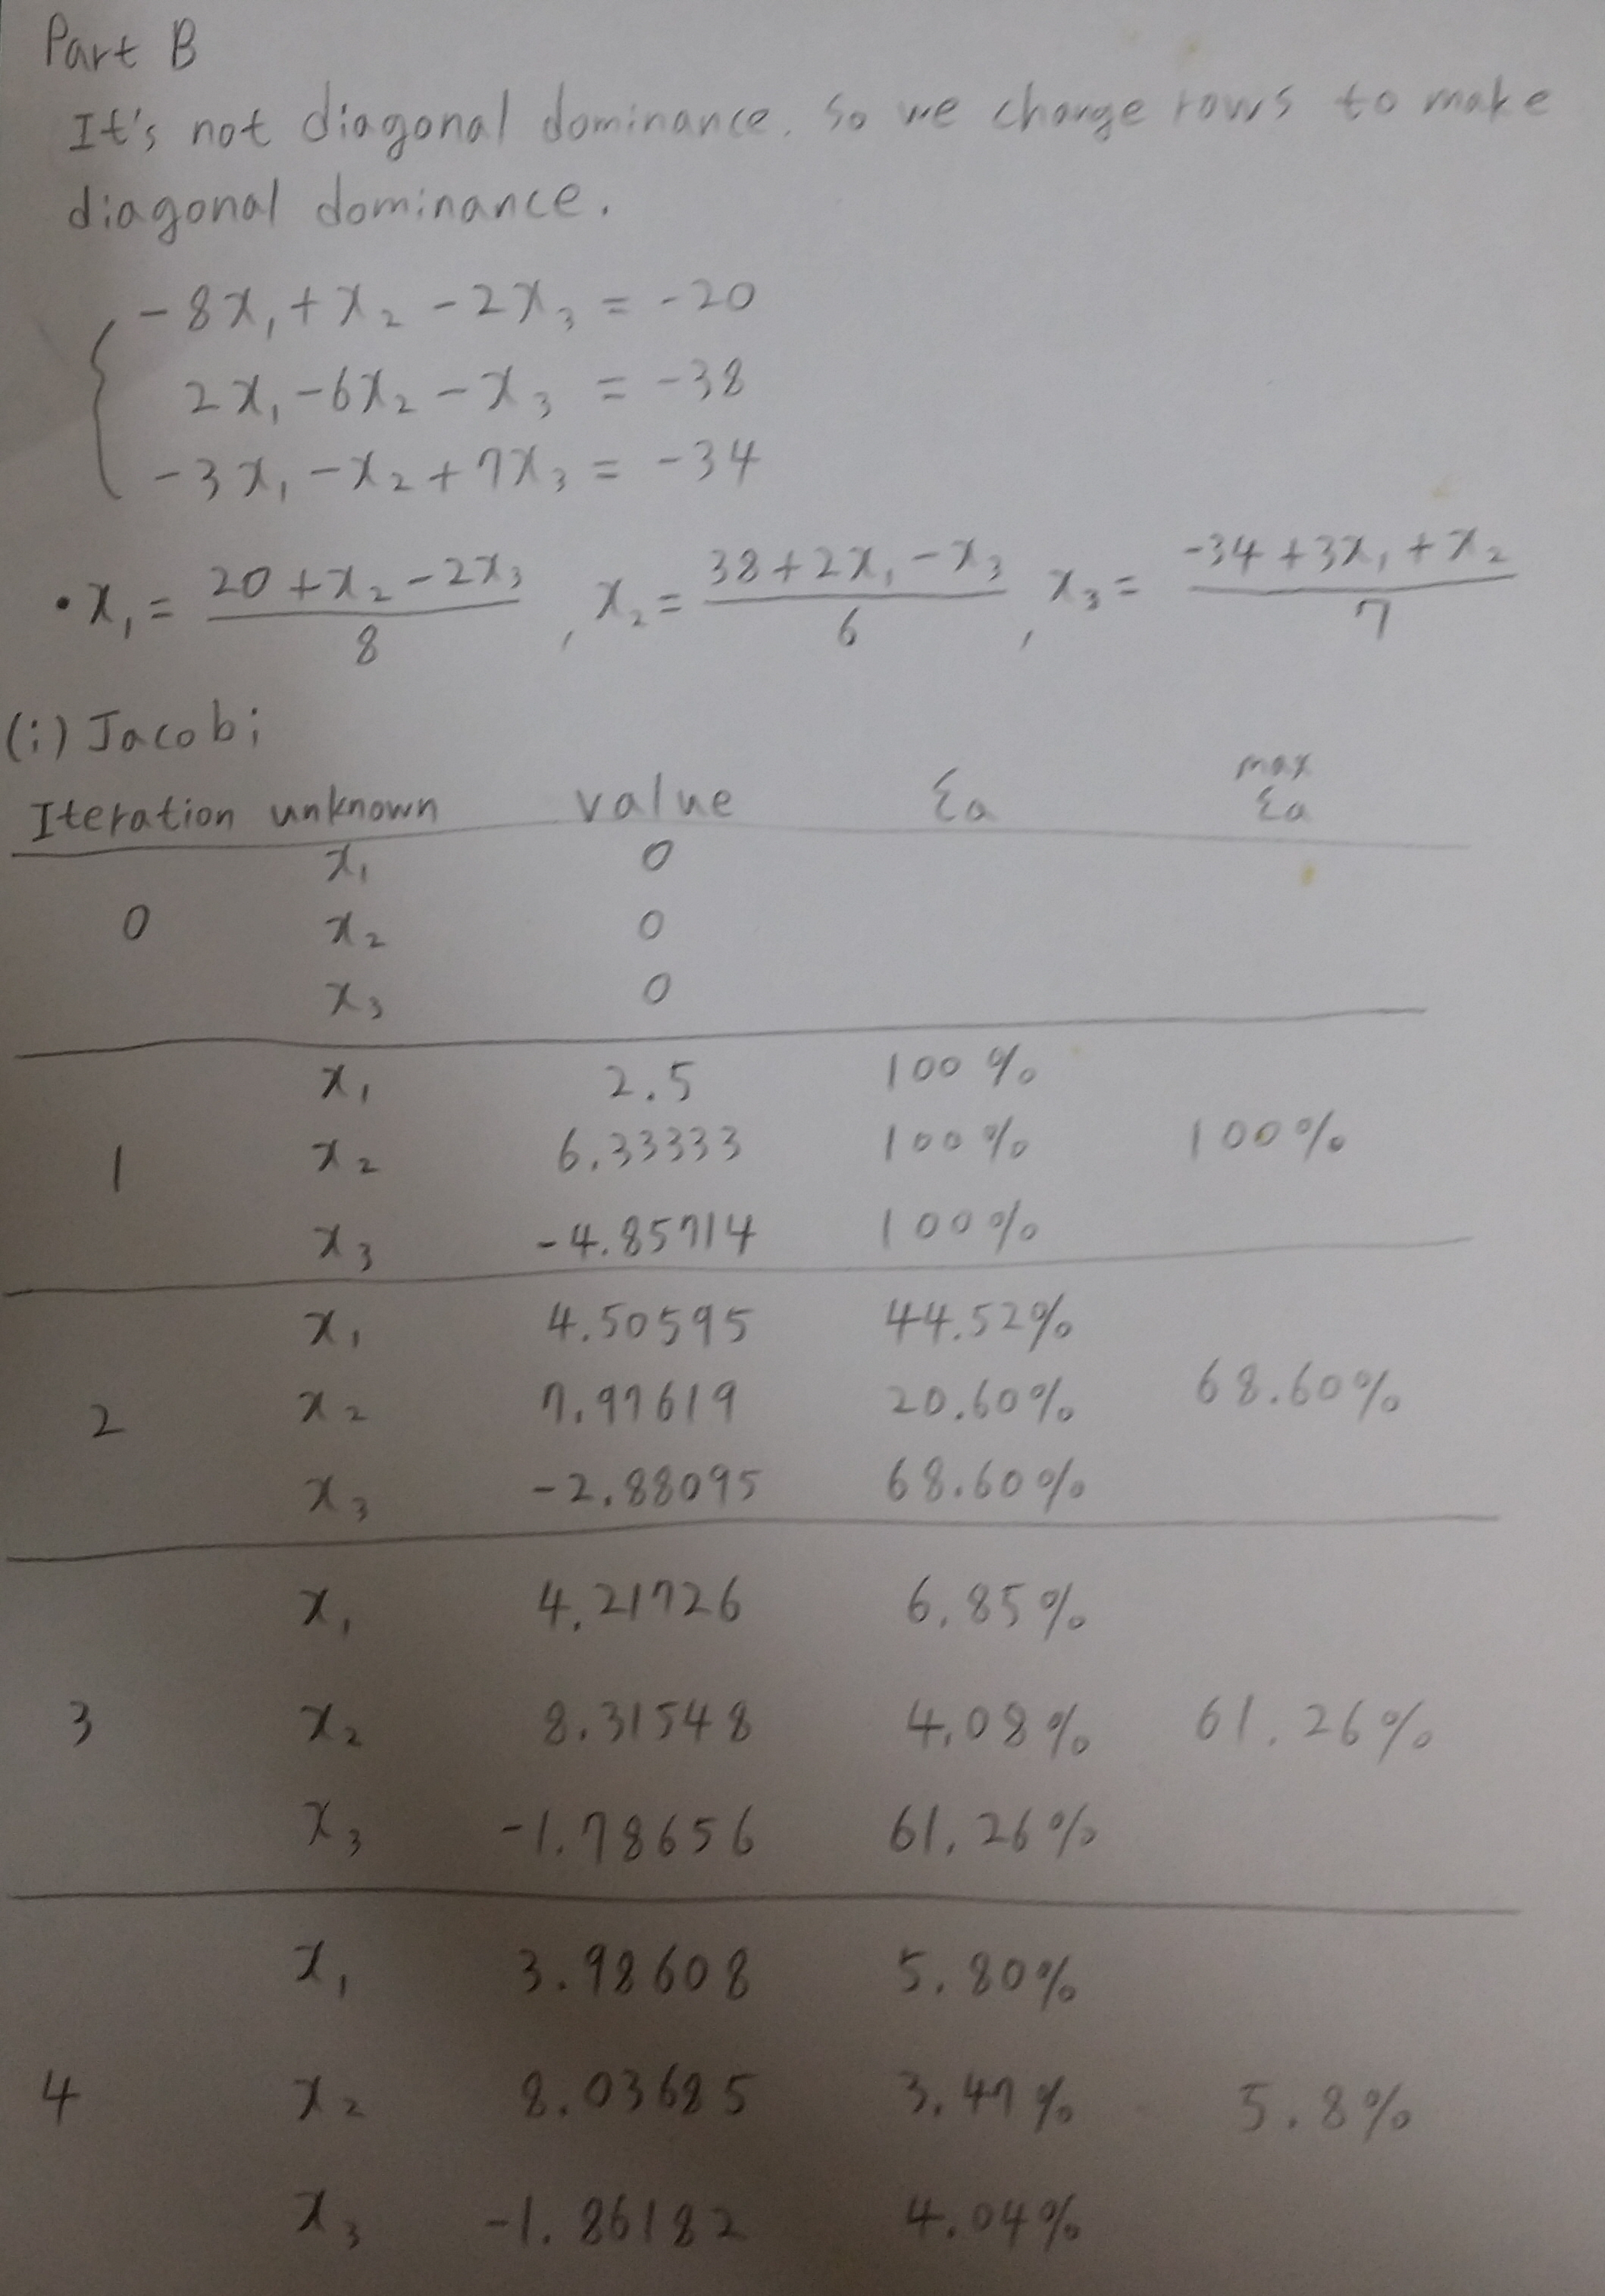 Part B
It's not diagonal dominance. So we change rows to make
diagonal dominance.
-8x₁ + x₂ - 2x₃ = -20
2x₁ - 6x₂ - x₃ = -38
-3x₁ - x₂ + 7x₃ = -34
• x₁ = (20 + x₂ - 2x₃)/8 , x₂ = (38 + 2x₁ - x₃)/6 , x₃ = (-34 + 3x₁ + x₂)/7
(i) Jacobi
Iteration unknown value εa max εa
x₁ 0
0 x₂ 0
x₃ 0
x₁ 2.5 100%
1 x₂ 6.33333 100% 100%
x₃ -4.85714 100%
x₁ 4.50595 44.52%
2 x₂ 7.97619 20.60% 68.60%
x₃ -2.88095 68.60%
x₁ 4.21726 6.85%
3 x₂ 8.31548 4.08% 61.26%
x₃ -1.78656 61.26%
x₁ 3.98608 5.80%
4 x₂ 8.03685 3.47% 5.8%
x₃ -1.86182 4.04%